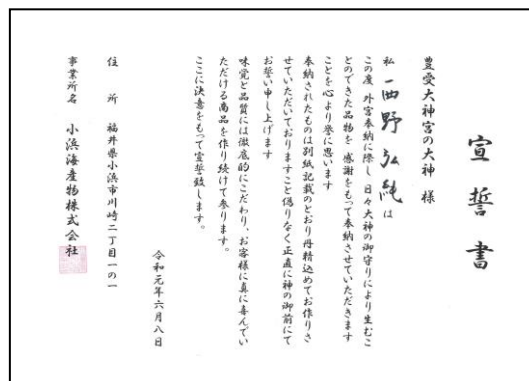 宣誓書
豊受大神宮の大神 様
私 西野弘純 は
この度 外宮奉納に際し 日々大神の御守りにより生むこ
とのできた品物を 感謝をもって奉納させていただきます
ことを心より誉に思います
奉納されたものは別紙記載のとおり丹精込めてお作りさ
せていただいておりますこと偽りなく正直に神の御前にて
お誓い申し上げます
味覚と品質には徹底的にこだわり、お客様に真に喜んでい
ただける商品を作り続けて参ります。
ここに決意をもって宣誓致します。
令和元年六月八日
住 所 福井県小浜市川崎二丁目一の一
事業所名 小浜海産物株式会社